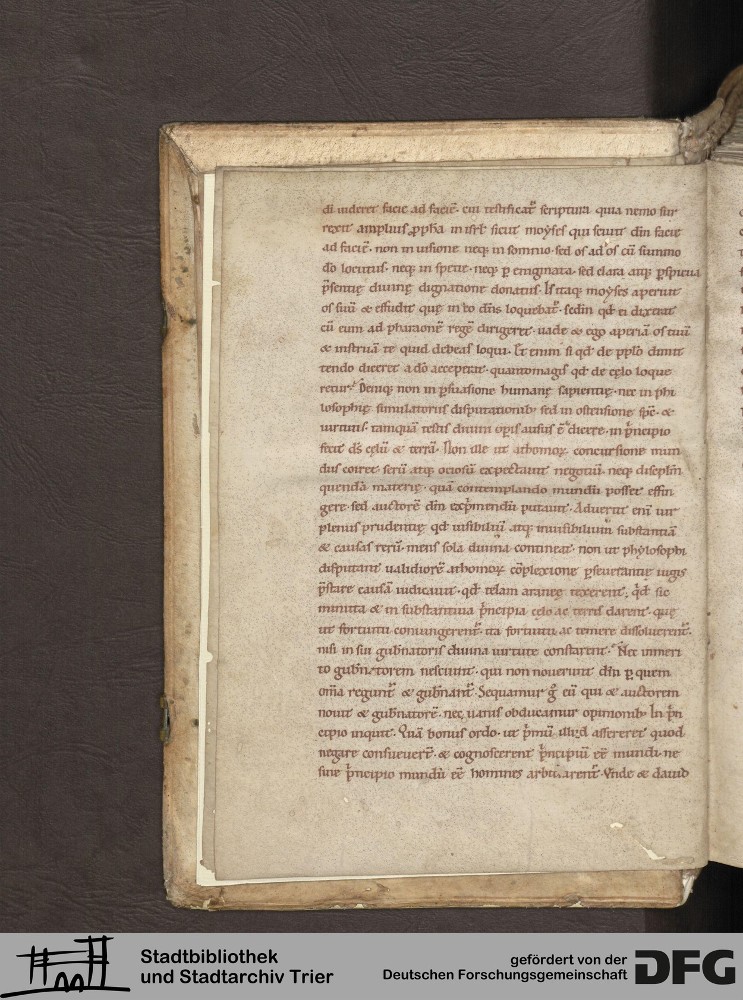 dī uideret facie ad faciē. cui testificat᷑ scriptura quia nemo sur
rexit amplius ꝓpha in isrl̄ sicut moyses qui sciuit dīn facie
ad faciē. non in uisione neq; in somnio. sed os ad os cū summo
dō locutus. neq; in specie. neq; ꝑ enigmata. sed clara atq; ꝑspicua
p̄sentię diuinę dignatione donatus. Is itaq; moyses aperuit
os suū & effudit quę in eo dn̄s loquebat᷑. scdm qd̄ ei dixerat
cū eum ad pharaonē regē dirigeret. uade & ego aperiā os tuū
& instruā te quid debeas loqui. Et enim si qd̄ de pplō dimit
tendo diceret a dō acceperat. quantomagis qd̄ de cęlo loque
retur. Deniq; non in p̄suasione humanę sapientię. nec in phi
losophię simulatoriis disputationib; sed in ostensione sp̄c. &
uirtutis. tamquā testis diuini op̄is ausus ē dicere. in p̄ncipio
fecit ds̄ cęlū & terrā. Non ille ut athomoꝝ concursione mun
dus coiret serū atq; ociosū expectauit negotiū. neq; disciplīn
quendā materię. quā contemplando mundū posset effin
gere. sed auctorē dīn exp̄mendū putauit. Aduertit enī uir
plenus prudentię qd̄ uisibiliū atq; inuisibilium substantiā
& causas rerū. mens sola diuina contineat. non ut phylosophi
disputant ualidiorē athomoꝝ cōplexione ꝑseuerantię iugis
p̄stare causā iudicauit. qd̄ telam araneę texerent; qd̄ sic
minuta & in substantiua p̄ncipia cęlo ac terris darent. quę
ut fortuitu coniungerent᷑. ita fortuitu ac temere dissoluerent᷑.
nisi in sui gub̄natoris diuina uirtute constarent. Nec inmeri
to gub̄natorem nesciunt. qui non nouerunt dīn ꝑ quem
om̄ia regunt᷑ & gub̄nant᷑. Sequamur g̊ eū qui & auctorem
nouit & gub̄natorē. nec uanis obducamur opinionib; In p̄n
cipio inquit. Quā bonus ordo. ut p̄mū illud assereret quod
negare consueuer̄t. & cognoscerent p̄ncipiū eē mundi. ne
sine p̄ncipio mundū eē homines arbitrarent᷑. Vnde & dauid
Stadtbibliothek
und Stadtarchiv Trier
gefördert von der
Deutschen Forschungsgemeinschaft
DFG